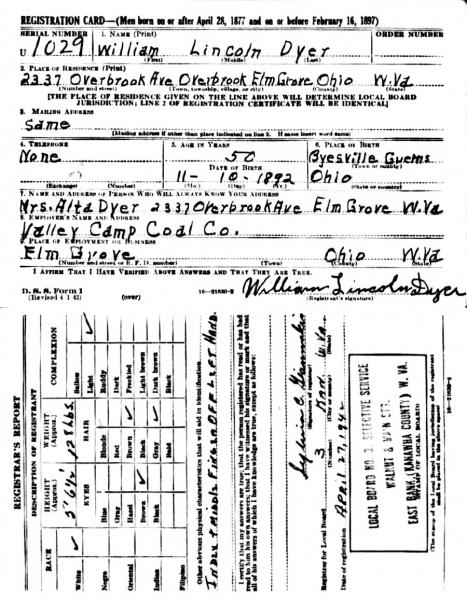 REGISTRATION CARD—(Men born on or after April 28, 1877 and on or before February 16, 1897)
SERIAL NUMBER 1. NAME (Print) ORDER NUMBER
U 1029 William Lincoln Dyer
(First) (Middle) (Last)
2. PLACE OF RESIDENCE (Print)
2337 Overbrook Ave Overbrook Elm Grove Ohio W.Va
(Number and street) (Town, township, village, or city) (County) (State)
[THE PLACE OF RESIDENCE GIVEN ON THE LINE ABOVE WILL DETERMINE LOCAL BOARD
JURISDICTION; LINE 2 OF REGISTRATION CERTIFICATE WILL BE IDENTICAL]
3. MAILING ADDRESS
Same
[Mailing address if other than place indicated on line 2. If same insert word same]
4. TELEPHONE 5. AGE IN YEARS 6. PLACE OF BIRTH
None 50 Byesville Guerns
DATE OF BIRTH (Town or county)
11- 10- 1892 Ohio
(Exchange) (Number) (Mo.) (Day) (Yr.) (State or country)
7. NAME AND ADDRESS OF PERSON WHO WILL ALWAYS KNOW YOUR ADDRESS
Mrs. Alta Dyer 2337 Overbrook Ave Elm Grove W.Va
8. EMPLOYER'S NAME AND ADDRESS
Valley Camp Coal Co.
9. PLACE OF EMPLOYMENT OR BUSINESS
Elm Grove Ohio W.Va
(Number and street or R. F. D. number) (Town) (County) (State)
I AFFIRM THAT I HAVE VERIFIED ABOVE ANSWERS AND THAT THEY ARE TRUE.
D. S. S. Form 1
(Revised 4 1 42) (over) 16—21630-2 William Lincoln Dyer
(Registrant's signature)
REGISTRAR'S REPORT
DESCRIPTION OF REGISTRANT
RACE HEIGHT (Approx.) WEIGHT (Approx.) COMPLEXION
5' 6½"
EYES HAIR
White ✓ Blue Blonde Sallow
Light ✓
Negro Gray Red Ruddy
Dark
Oriental Hazel Brown Freckled
Brown ✓ Black Light brown
Indian Black Gray Dark brown
Bald Black
Filipino
Other obvious physical characteristics that will aid in identification
INDEX & MIDDLE FINGER OFF LEFT HAND.
I certify that my answers are true; that the person registered has read or has had
read to him his own answers; that I have witnessed his signature or mark and that
all of his answers of which I have knowledge are true, except as follows:
(Signature of registrar)
Registrar for Local Board 3 W.Va.
(Number) (City or county) (State)
Date of registration April 27, 1942
LOCAL BOARD NO. 3, SELECTIVE SERVICE
WALNUT & MAIN STS.
EAST BANK (KANAWHA COUNTY) W. VA.
STAMP OF LOCAL BOARD
(The stamp of the Local Board having jurisdiction of the registrant
shall be placed in the above space)
16—21630-2